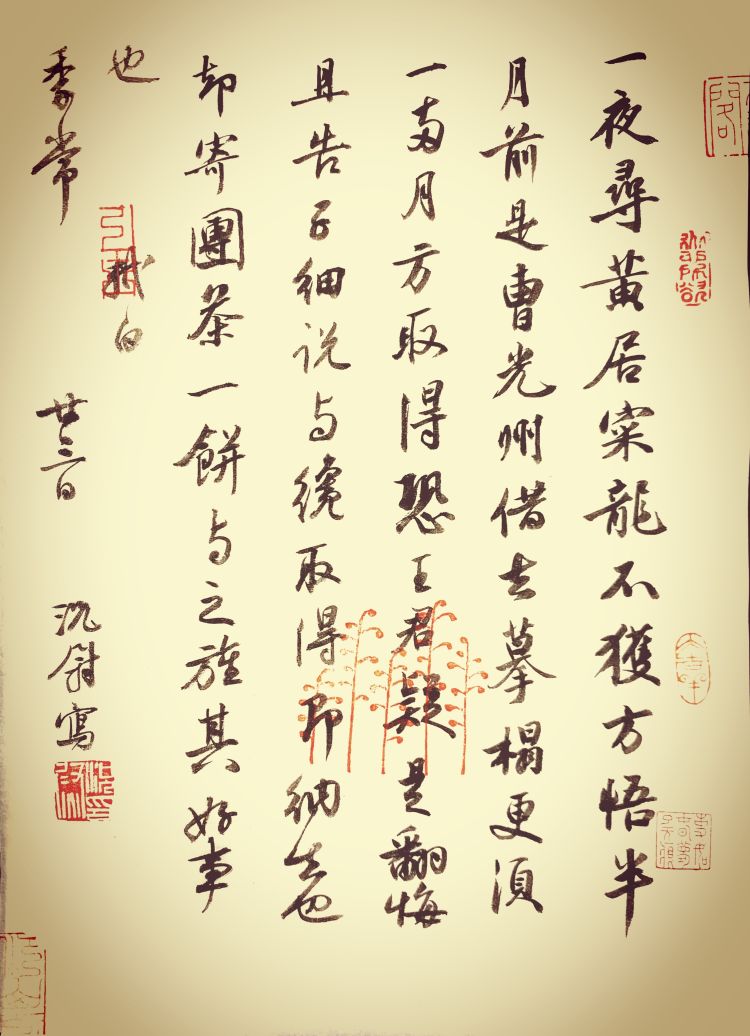 一夜尋黄居寀龍不獲方悟半
月前是曹光州借去摹榻更須
一两月方取得恐王君疑是翻悔
且告子細说与纔取得即納去也
却寄團茶一餅与之旌其好事
也
軾白
季常
廿三日
沈尉寫